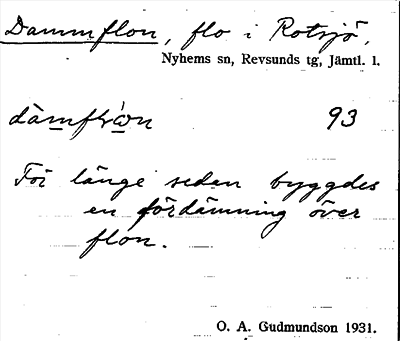 Dammflon, flo i Rotsjö,
Nyhems sn, Revsunds tg, Jämtl. l.
93
För länge sedan byggdes
en fördämning över
flon.
O. A. Gudmundson 1931.